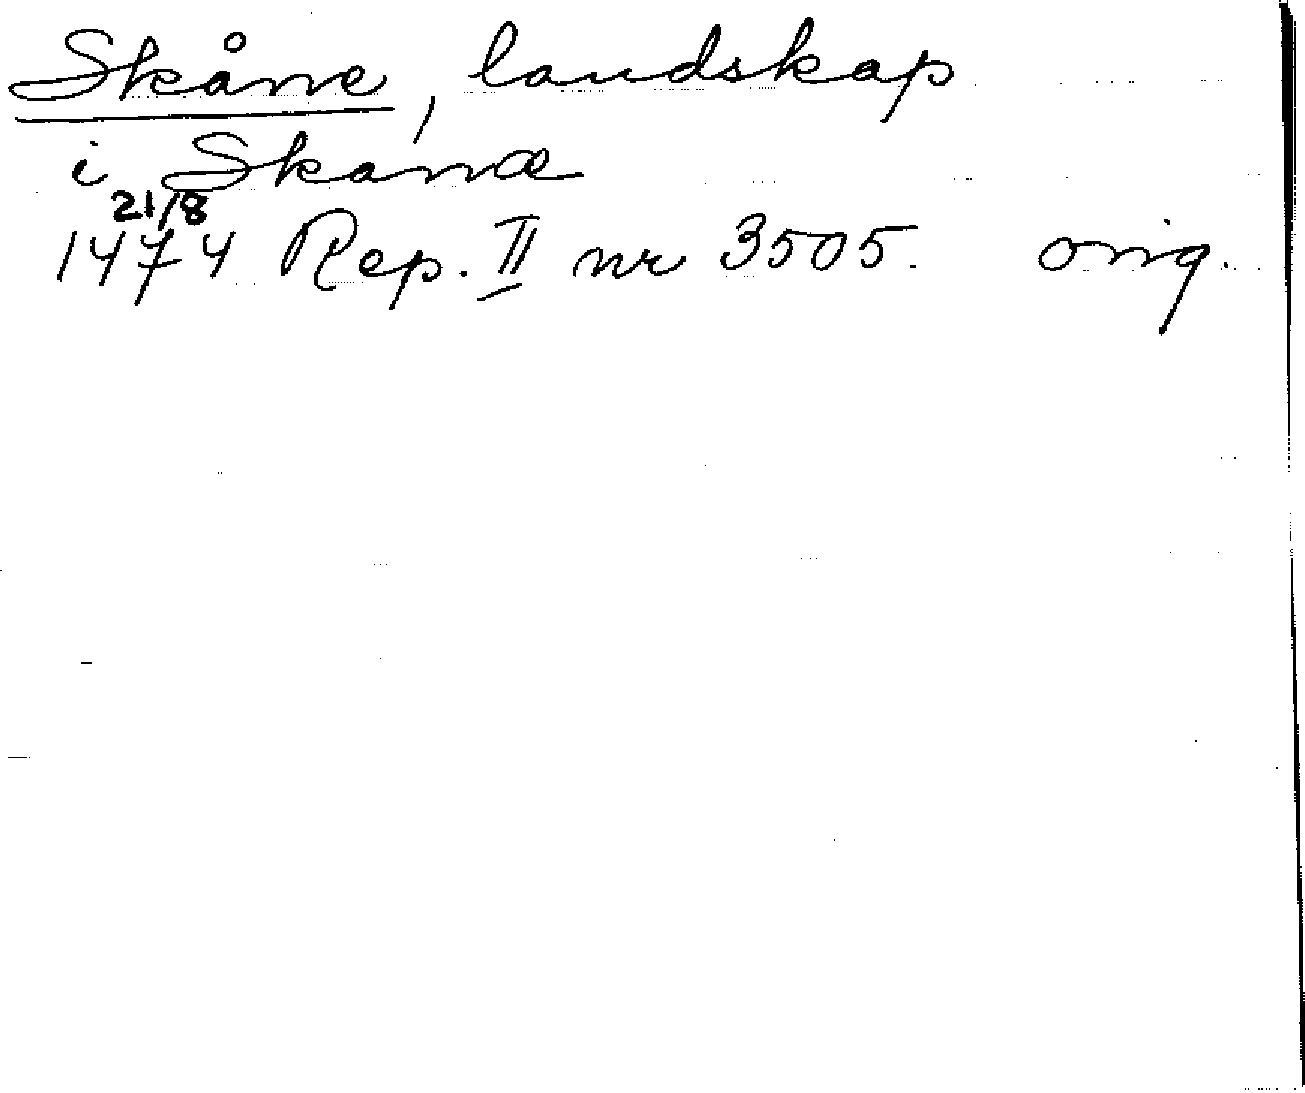 Skåne, landskap
i Skanæ
21/8
1474 Rep. II nr 3505. orig.